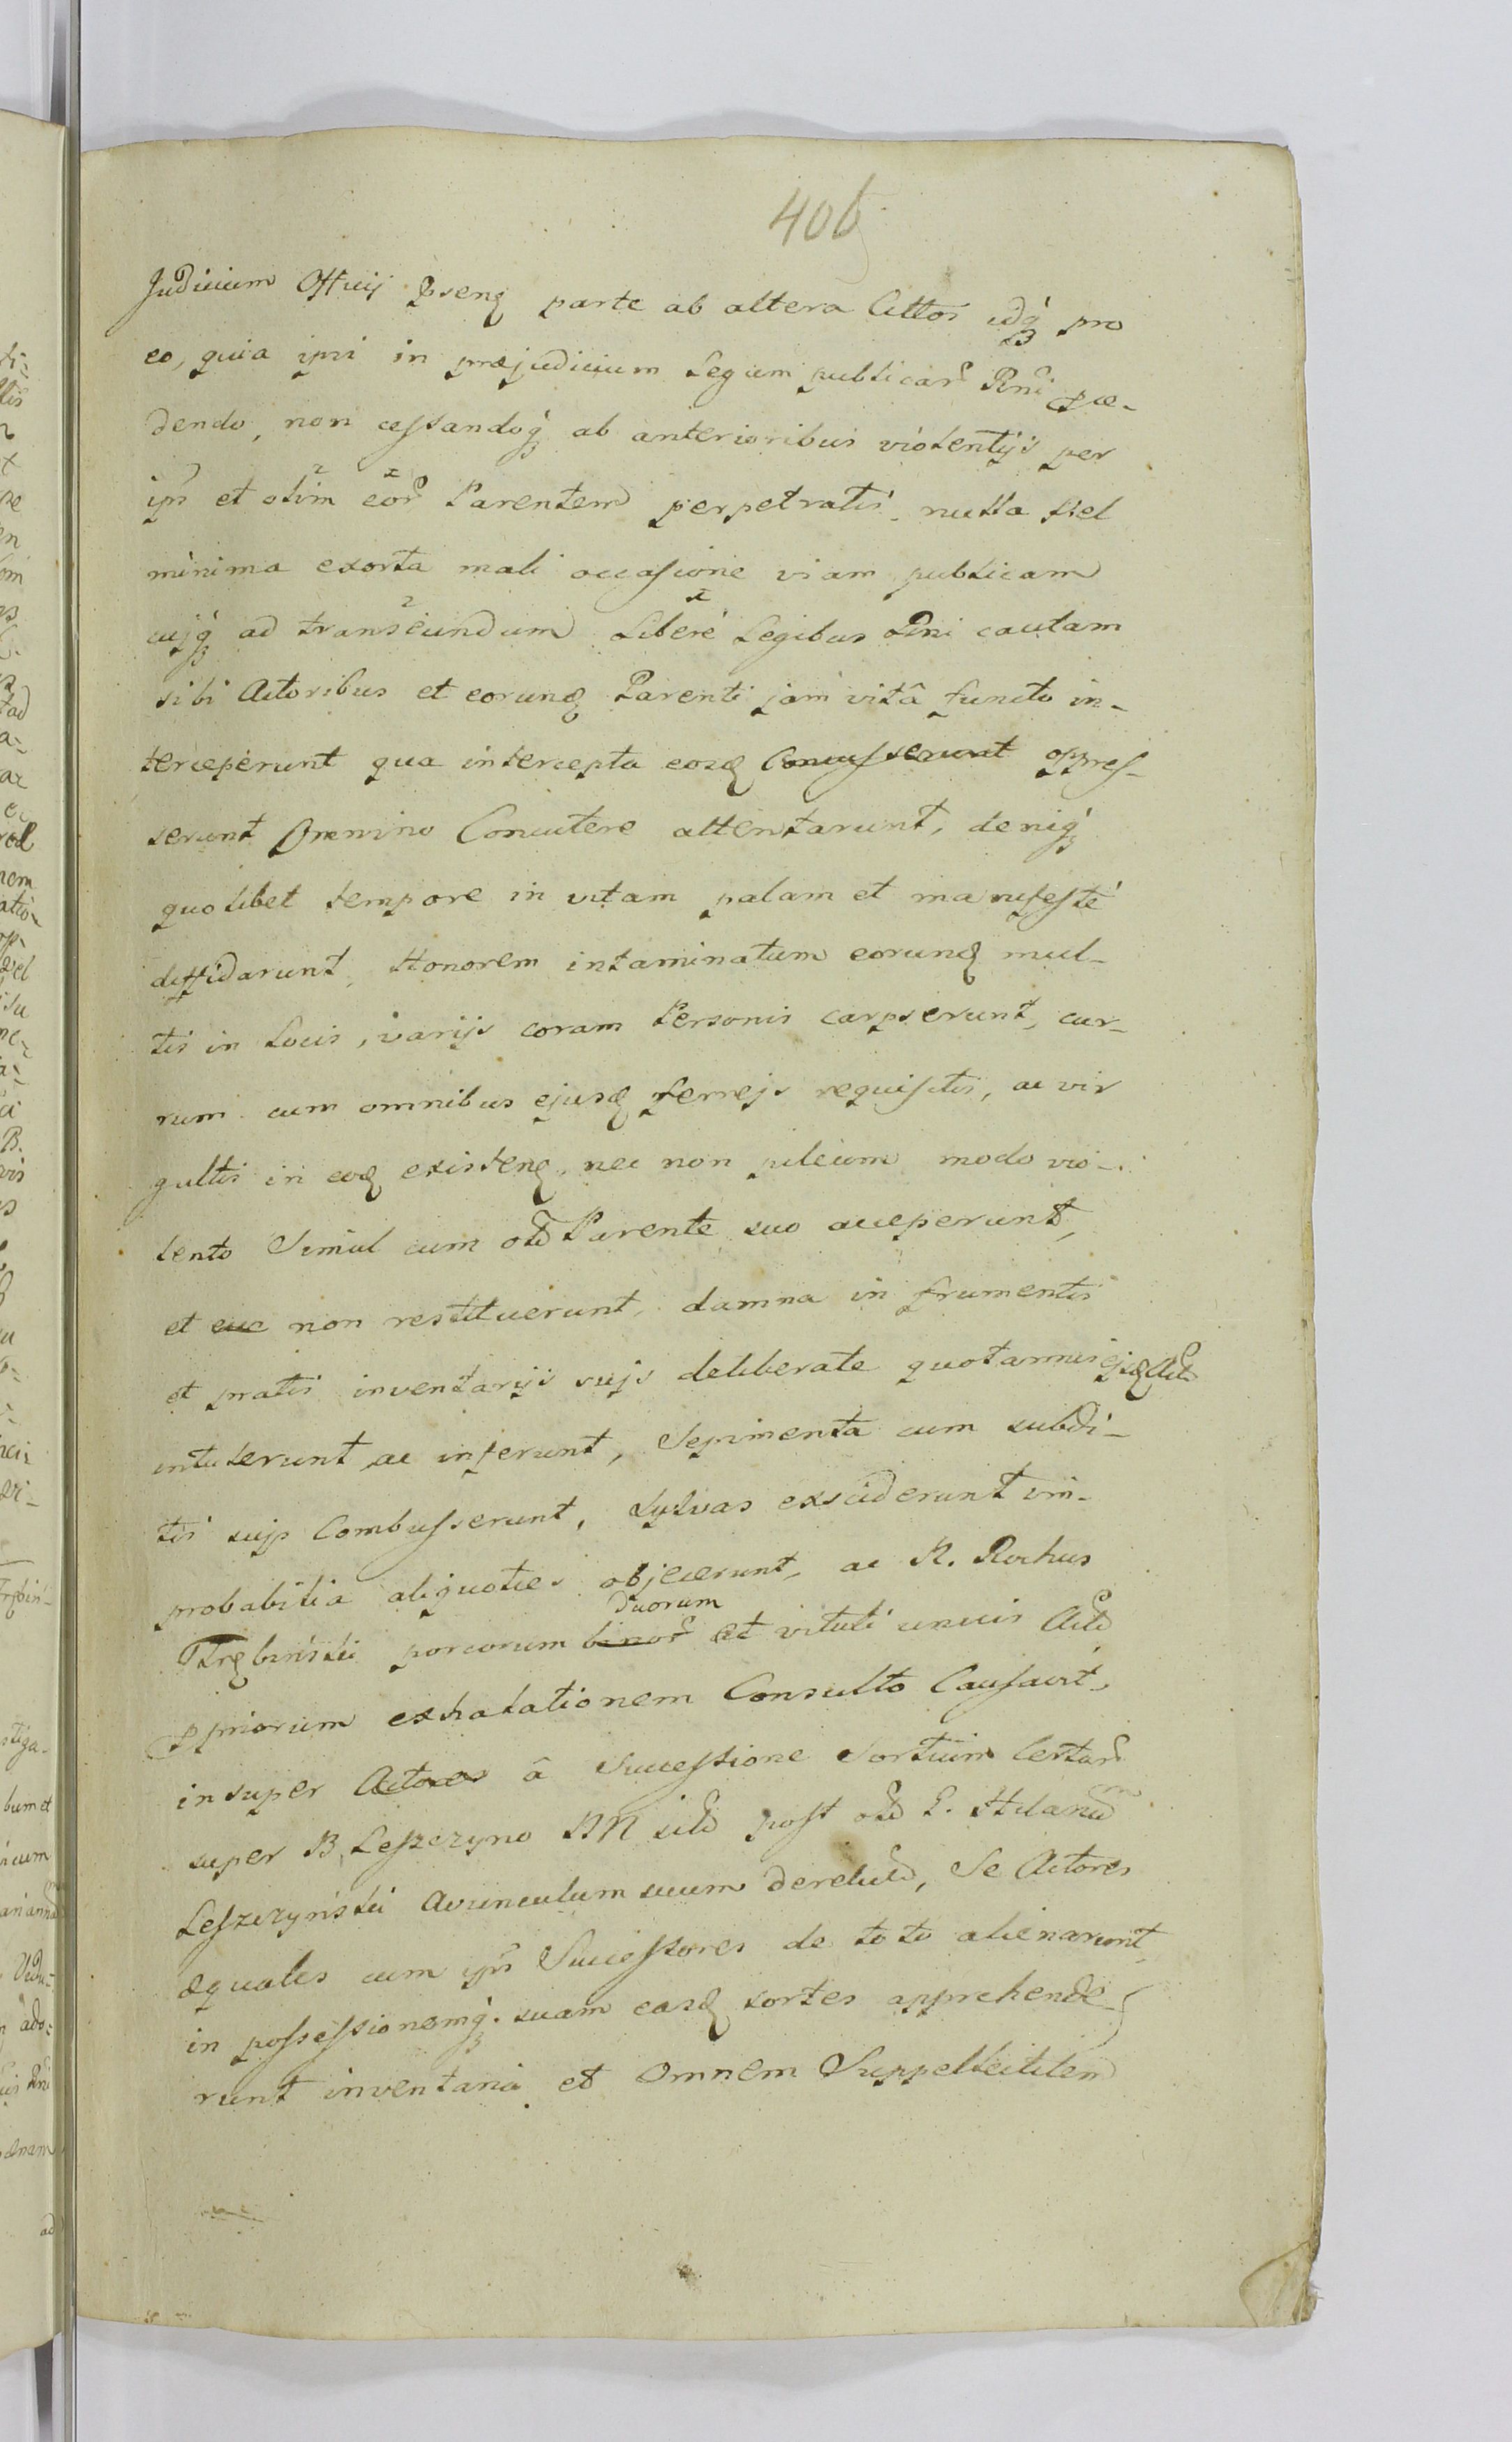 406
Judicium Officij Pseng parte ab altera Cittos idq́ pro
eo, quia ipsi in præjudicium Legum publicar Rni Præ-
dendo, non cessandoq́ ab anterioribus violentijs per
ips et olim eor Parentem perpetratis. nulla vel
minima exorta mali occasione viam publicam
cujq́ ad transeundum Liberè Legibus Rni cautam
sibi Actoribus et eorund Parenti jam vitâ functo in-
terceperunt qua intercepta eosd Concusserunt oppres-
serunt Omnino Concutere attentarunt, deniq́
quolibet tempore in vitam palam et manifestè
diffidarunt, Honorem intaminatum eorund mul-
tis in Locis, varijs coram Personis carpserunt, cur-
rum cum omnibus ejusd ferrejs requisitis, ac vir
gultis in eod existeng, nec non pileum modo vio-
lento Simul cum old Parente suo acceperunt,
et eue non restituerunt, damna in frumentis
et pratis inventarijs sujs deliberate quotannis ejsd Act
intulerunt ac inferunt, Sepimenta cum subdi-
tis sujs Combusserunt, Sylvas exsciderunt vim-
probabilia aliquoties objecerunt, ac R. Rochus
duorum
Trębiński porcorum binor et vituli unius Act
Ppriorum exhalationem Consulto Causavit,
insuper Actores â Successione Sortium Certar
super B. Leszczyno NN sitd post old G. Hilarium
Leszczyński Avunculum suum derelict, Se Actores
æquales cum ips Successores de toto alienarunt
in possessionemq́. suam easd sortes apprehende-
runt inventaria et Omnem Suppellectilem